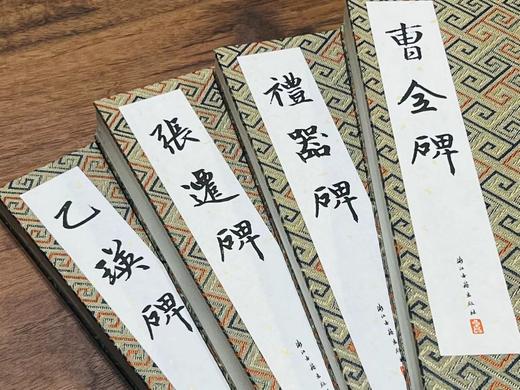 曹全碑
浙江古籍出版社
禮器碑
浙江古籍出版
張遷碑
浙
乙瑛碑